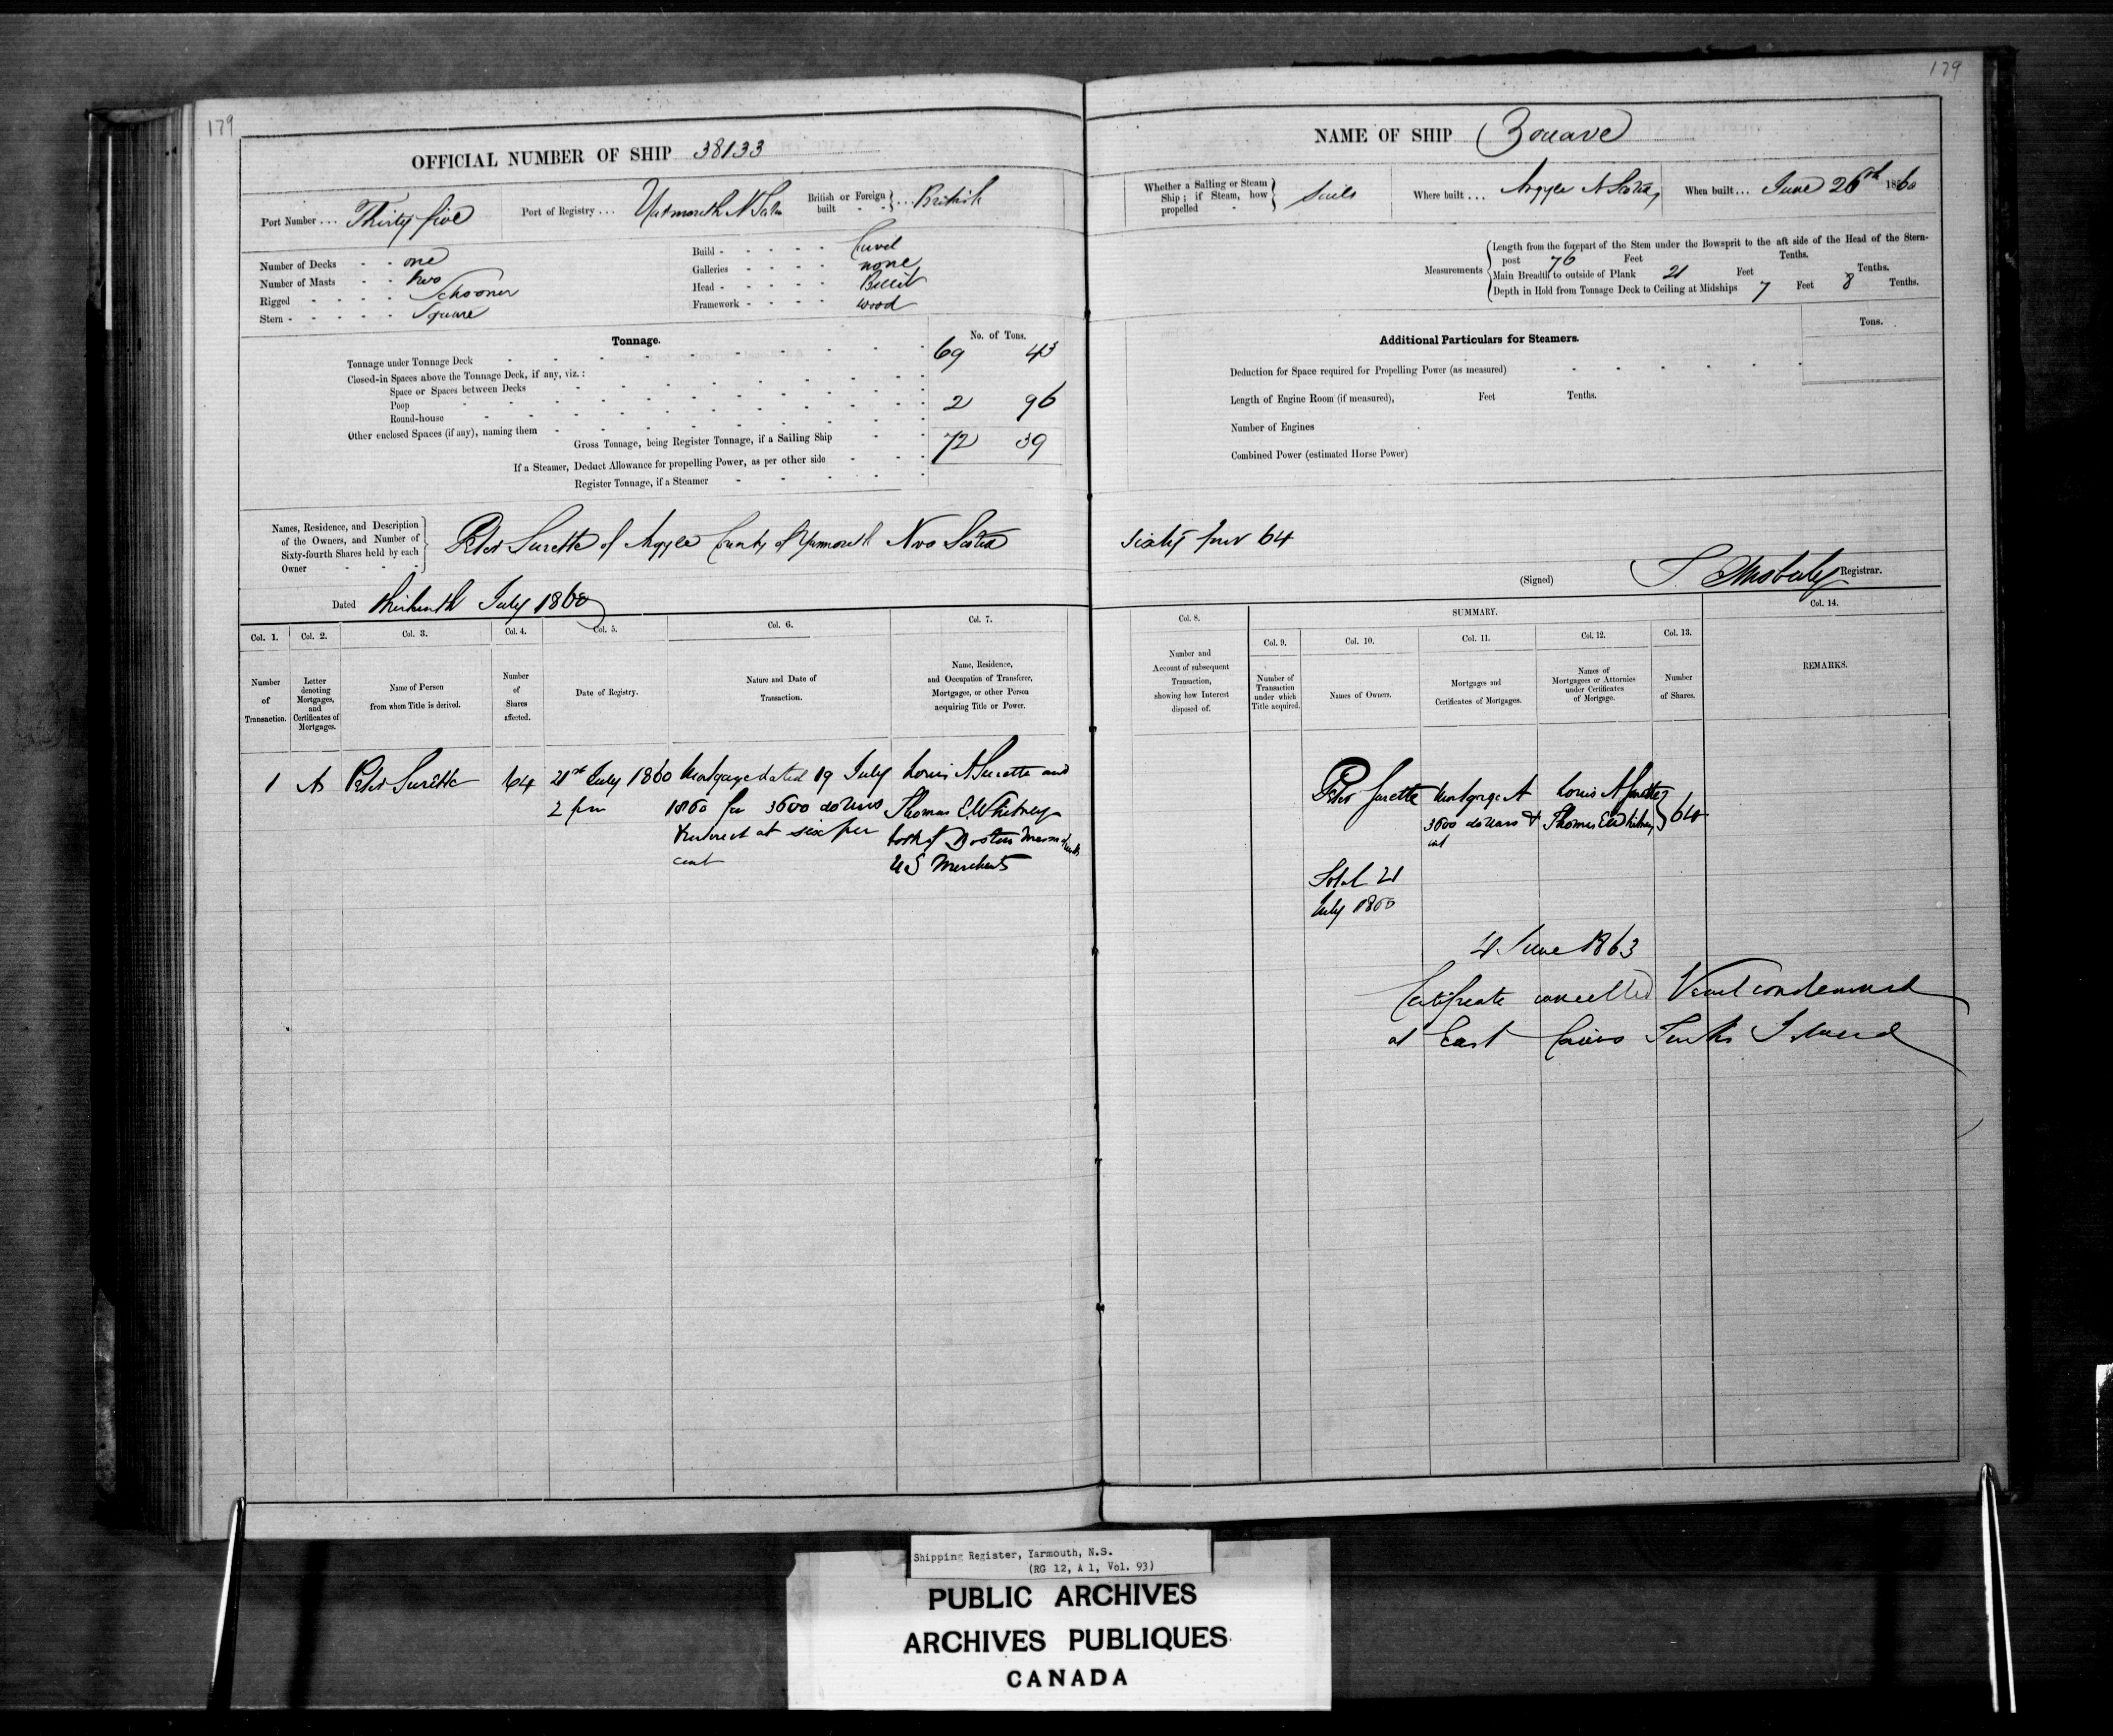 179
179
OFFICIAL NUMBER OF SHIP 38133
NAME OF SHIP Zouave
Port Number ... Thirty five
Port of Registry ... Yarmouth N Scotia
British or Foreign built } ... British
Whether a Sailing or Steam Ship; if Steam, how propelled } Sails
Where built ... Argyle N Scotia
When built ... June 26th 1860
Number of Decks one
Number of Masts two
Rigged Schooner
Stern Square
Build Carvel
Galleries none
Head Billet
Framework wood
Measurements
Length from the forepart of the Stem under the Bowsprit to the aft side of the Head of the Stern-
post 76 Feet Tenths.
Main Breadth to outside of Plank 21 Feet Tenths.
Depth in Hold from Tonnage Deck to Ceiling at Midships 7 Feet 8 Tenths.
Tonnage.
No. of Tons.
Tonnage under Tonnage Deck 69 43
Closed-in Spaces above the Tonnage Deck, if any, viz.:
Space or Spaces between Decks
Poop 2 96
Round-house
Other enclosed Spaces (if any), naming them
Gross Tonnage, being Register Tonnage, if a Sailing Ship 72 39
If a Steamer, Deduct Allowance for propelling Power, as per other side
Register Tonnage, if a Steamer
Additional Particulars for Steamers.
Tons.
Deduction for Space required for Propelling Power (as measured)
Length of Engine Room (if measured), Feet Tenths.
Number of Engines
Combined Power (estimated Horse Power)
Names, Residence, and Description
of the Owners, and Number of
Sixty-fourth Shares held by each
Owner
Peter Surette of Argyle County of Yarmouth Nova Scotia Sixty four 64
(Signed) Registrar.
Dated thirteenth July 1860
Col. 1. Col. 2. Col. 3. Col. 4. Col. 5. Col. 6. Col. 7.
Number of Transaction.
Letter denoting Mortgages, and Certificates of Mortgages.
Name of Person from whom Title is derived.
Number of Shares affected.
Date of Registry.
Nature and Date of Transaction.
Name, Residence, and Occupation of Transferee, Mortgagee, or other Person acquiring Title or Power.
Col. 8.
SUMMARY.
Col. 9. Col. 10. Col. 11. Col. 12. Col. 13. Col. 14.
Number and Account of subsequent Transaction, showing how Interest disposed of.
Number of Transaction under which Title acquired.
Names of Owners.
Mortgages and Certificates of Mortgages.
Names of Mortgagees or Attornies under Certificates of Mortgage.
Number of Shares.
REMARKS.
1 A Peter Surette 64 21st July 1860 Mortgage dated 19 July Louis A Surette and
2 pm 1860 for 3600 dollars Thomas E Whitney
Interest at six per both of Boston Massachusetts
cent US Merchants
Peter Surette Mortgage A Louis A Surette } 64
3600 dollars & Thomas E Whitney
int
Total 21
July 1860
4 June 1863
Certificate cancelled Vessel condemned
at East Caicos Turks Island
Shipping Register, Yarmouth, N.S.
(RG 12, A 1, Vol. 93)
PUBLIC ARCHIVES
ARCHIVES PUBLIQUES
CANADA